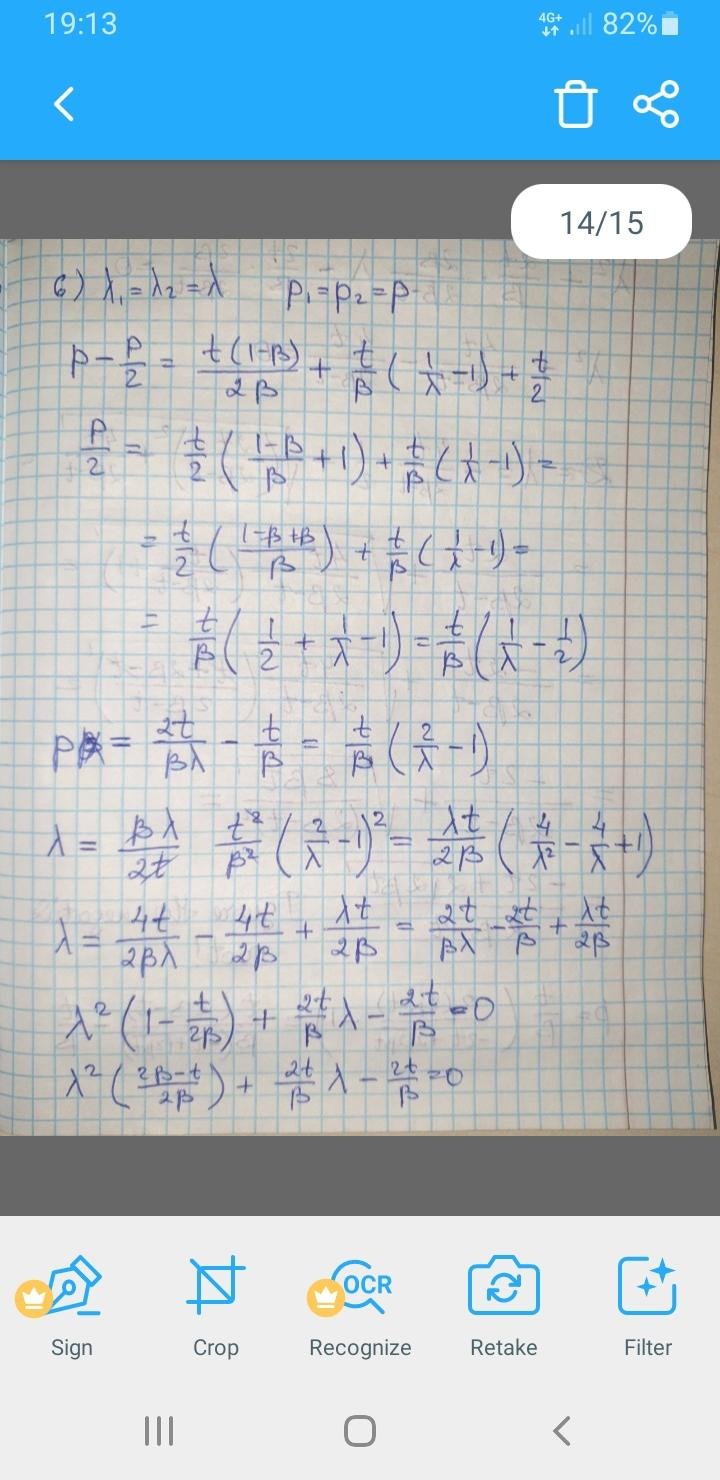 19:13 4G+ 82%
14/15
6) λ₁=λ₂=λ p₁=p₂=p
p-p/2 = t(1-β)/2β + t/β (1/λ -1) + t/2
p/2 = t/2 ((1-β)/β +1) + t/β (1/λ -1) =
= t/2 ((1-β+β)/β) + t/β (1/λ -1) =
= t/β (1/2 + 1/λ -1) = t/β (1/λ - 1/2)
p = 2t/βλ - t/β = t/β (2/λ -1)
λ = βλ/2t t²/β² (2/λ -1)² = λt/2β (4/λ² - 4/λ +1)
λ = 4t/2βλ - 4t/2β + λt/2β = 2t/βλ - 2t/β + λt/2β
λ² (1 - t/2β) + 2t/β λ - 2t/β = 0
λ² ((2β-t)/2β) + 2t/β λ - 2t/β = 0
OCR
Sign Crop Recognize Retake Filter